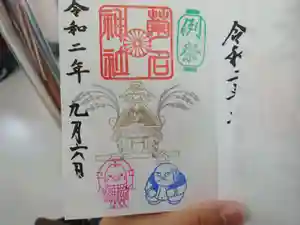 例祭
神社
令和二年 九月六日
令和二